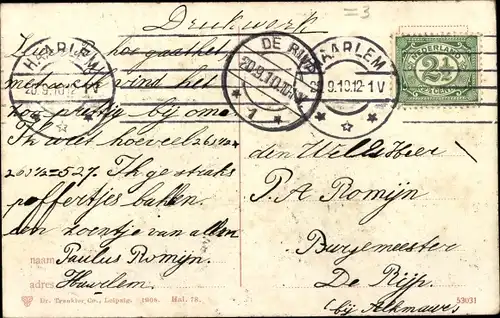 Drukwerk
=3
HAARLEM
20.9.10.12-1V
DE RIJP
20.9.10.
1
HAARLEM
9.10.12-1V
NEDERLAND
2½
CENT
Zeg hoe gaat het
met uw
vind het
bij oma
Ik weet hoeveel 261½ +
261½=527. Ik ga straks
poffertjes bakken.
een zoentje van allen
naam Paulus Romijn.
adres Haarlem
den WelEd Heer
P. A Romijn
Burgemeester
De Rijp.
bij Alkmaar
Dr. Trenkler Co., Leipzig. 1908. Hal. 78.
53031